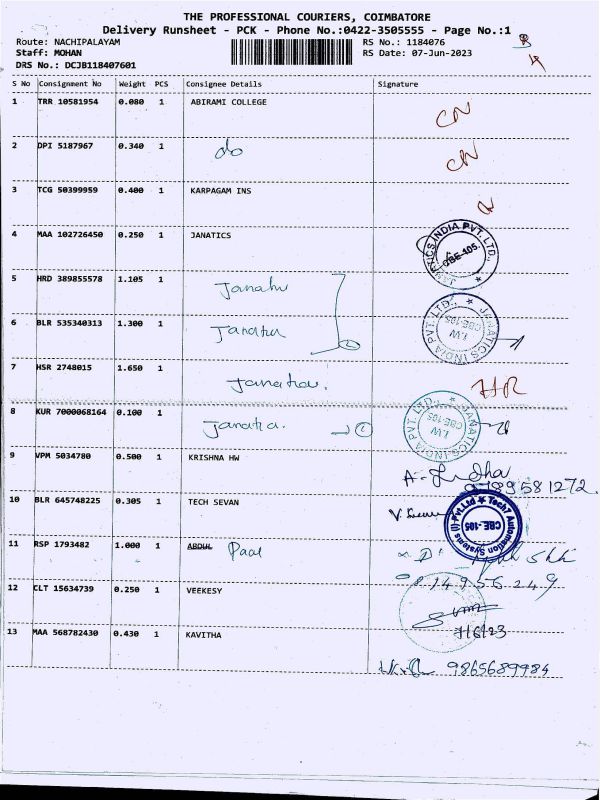 THE PROFESSIONAL COURIERS, COIMBATORE
Delivery Runsheet - PCK - Phone No.:0422-3505555 - Page No.:1
Route: NACHIPALAYAM RS No.: 1184076
Staff: MOHAN RS Date: 07-Jun-2023
DRS No.: DCJB118407601
S No Consignment No Weight PCS Consignee Details Signature
1 TRR 10581954 0.080 1 ABIRAMI COLLEGE CN
2 DPI 5187967 0.340 1 do CN
3 TCG 50399959 0.400 1 KARPAGAM INS
4 MAA 102726450 0.250 1 JANATICS JANATICS INDIA PVT. LTD., CBE-105.
5 HRD 389855578 1.105 1
6 BLR 535340313 1.300 1 JANATICS INDIA PVT. LTD., I.W CBE-105
7 HSR 2748015 1.650 1
8 KUR 7000068164 0.100 1 JANATICS INDIA PVT. LTD., I.W CBE-105
9 VPM 5034780 0.500 1 KRISHNA HW 9789581272.
10 BLR 645748225 0.305 1 TECH SEVAN Tech7 Automation Systems (I) Pvt.Ltd CBE-105
11 RSP 1793482 1.000 1 ABDUL Paal
12 CLT 15634739 0.250 1 VEEKESY 7/6/23
13 MAA 568782430 0.430 1 KAVITHA 9865689984